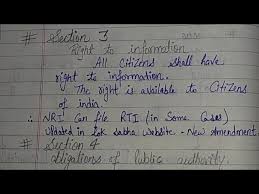 # Section 3
Right to information
All Citizens shall have
right to information.
The right is available to Citizens
of india.
∴ NRI can file RTI (in Some Cases)
Updated in Lok sabha website - New Amendment.
# Section 4
Obligations of Public authority.